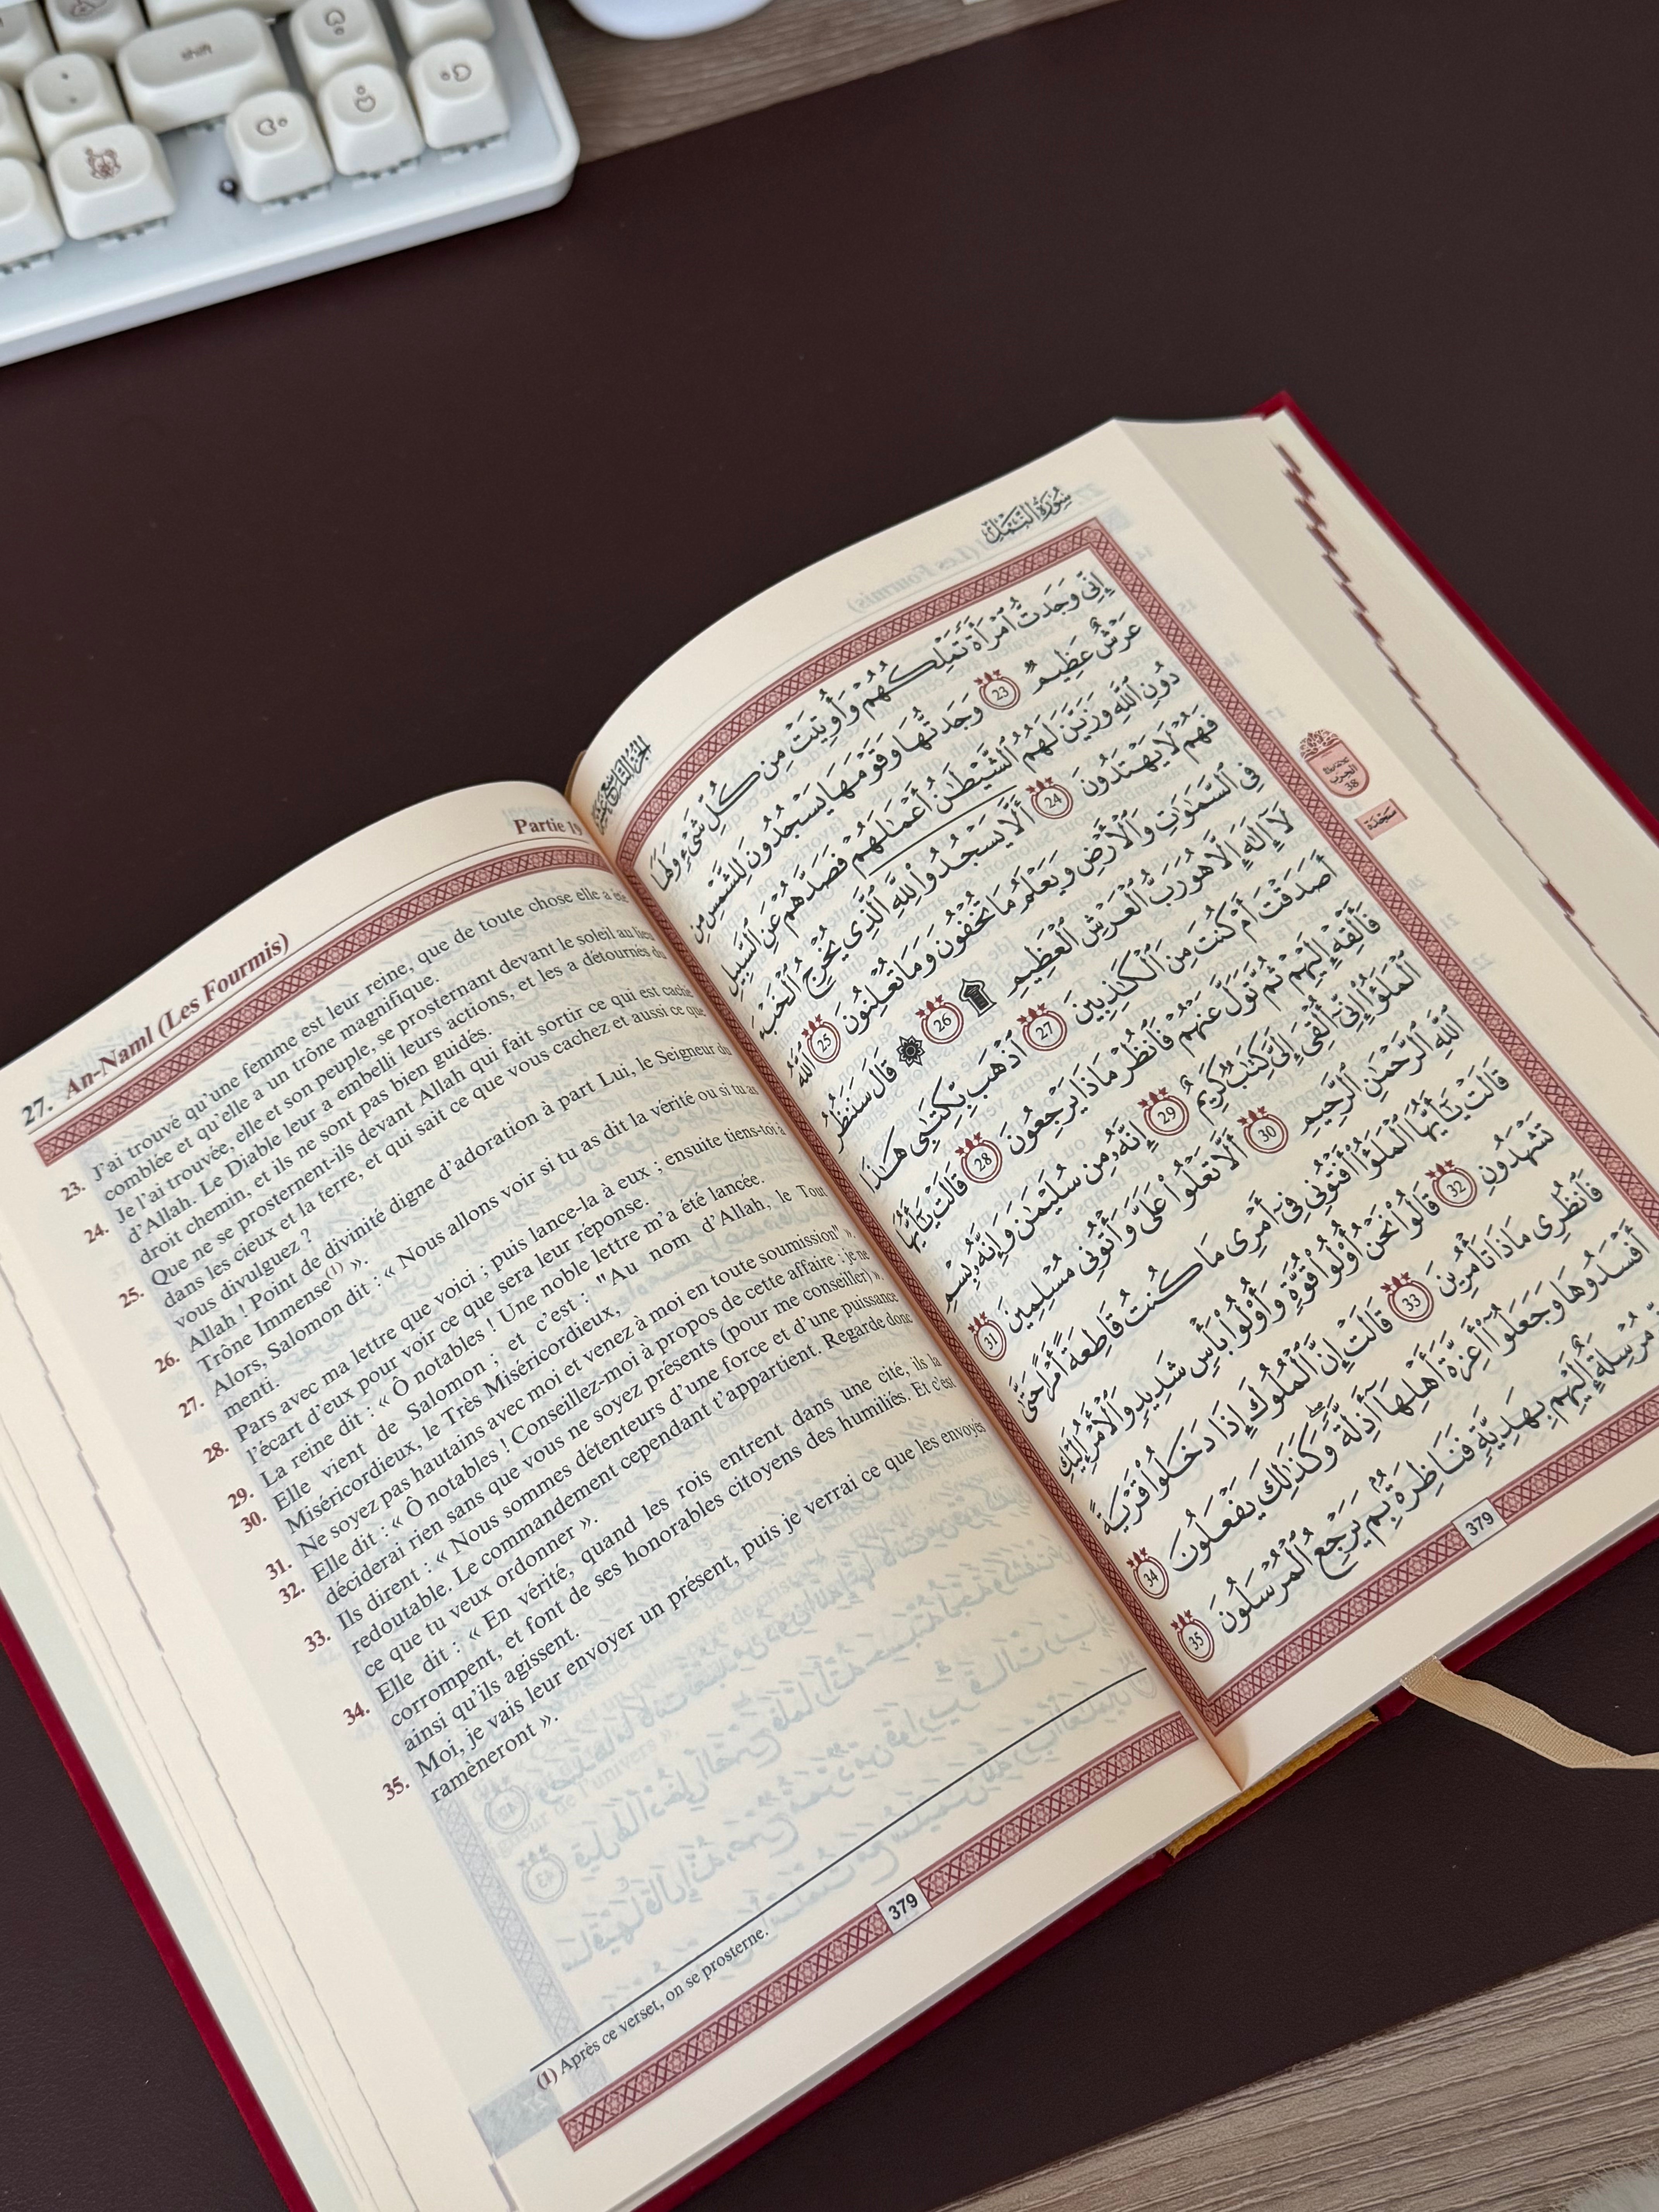 shift
27. An-Naml (Les Fourmis)
Partie 19
23. J'ai trouvé qu'une femme est leur reine, que de toute chose elle a été
comblée et qu'elle a un trône magnifique.
24. Je l'ai trouvée, elle et son peuple, se prosternant devant le soleil au lieu
d'Allah. Le Diable leur a embelli leurs actions, et les a détournés du
droit chemin, et ils ne sont pas bien guidés.
25. Que ne se prosternent-ils devant Allah qui fait sortir ce qui est caché
dans les cieux et la terre, et qui sait ce que vous cachez et aussi ce que
vous divulguez ?
26. Allah ! Point de divinité digne d'adoration à part Lui, le Seigneur du
Trône Immense(1) ».
27. Alors, Salomon dit : « Nous allons voir si tu as dit la vérité ou si tu as
menti.
28. Pars avec ma lettre que voici ; puis lance-la à eux ; ensuite tiens-toi à
l'écart d'eux pour voir ce que sera leur réponse.
29. La reine dit : « Ô notables ! Une noble lettre m'a été lancée.
30. Elle vient de Salomon ; et c'est : "Au nom d'Allah, le Tout
Miséricordieux, le Très Miséricordieux,
31. Ne soyez pas hautains avec moi et venez à moi en toute soumission" ».
32. Elle dit : « Ô notables ! Conseillez-moi à propos de cette affaire : je ne
déciderai rien sans que vous ne soyez présents (pour me conseiller) ».
33. Ils dirent : « Nous sommes détenteurs d'une force et d'une puissance
redoutable. Le commandement cependant t'appartient. Regarde donc
ce que tu veux ordonner ».
34. Elle dit : « En vérité, quand les rois entrent dans une cité, ils la
corrompent, et font de ses honorables citoyens des humiliés. Et c'est
ainsi qu'ils agissent.
35. Moi, je vais leur envoyer un présent, puis je verrai ce que les envoyés
ramèneront ».
(1) Après ce verset, on se prosterne.
379
سُورَةُ النَّمْلِ
إِنِّي وَجَدتُّ ٱمْرَأَةً تَمْلِكُهُمْ وَأُوتِيَتْ مِن كُلِّ شَىْءٍ وَلَهَا
عَرْشٌ عَظِيمٌ 23 وَجَدتُّهَا وَقَوْمَهَا يَسْجُدُونَ لِلشَّمْسِ مِن
دُونِ ٱللَّهِ وَزَيَّنَ لَهُمُ ٱلشَّيْطَٰنُ أَعْمَٰلَهُمْ فَصَدَّهُمْ عَنِ ٱلسَّبِيلِ
فَهُمْ لَا يَهْتَدُونَ 24 أَلَّا يَسْجُدُوا۟ لِلَّهِ ٱلَّذِى يُخْرِجُ ٱلْخَبْءَ
فِى ٱلسَّمَٰوَٰتِ وَٱلْأَرْضِ وَيَعْلَمُ مَا تُخْفُونَ وَمَا تُعْلِنُونَ 25 ٱللَّهُ
لَآ إِلَٰهَ إِلَّا هُوَ رَبُّ ٱلْعَرْشِ ٱلْعَظِيمِ ۩ 26 ۞ قَالَ سَنَنظُرُ
أَصَدَقْتَ أَمْ كُنتَ مِنَ ٱلْكَٰذِبِينَ 27 ٱذْهَب بِّكِتَٰبِى هَٰذَا
فَأَلْقِهْ إِلَيْهِمْ ثُمَّ تَوَلَّ عَنْهُمْ فَٱنظُرْ مَاذَا يَرْجِعُونَ 28 قَالَتْ يَٰٓأَيُّهَا
ٱلْمَلَؤُا۟ إِنِّىٓ أُلْقِىَ إِلَىَّ كِتَٰبٌ كَرِيمٌ 29 إِنَّهُۥ مِن سُلَيْمَٰنَ وَإِنَّهُۥ بِسْمِ
ٱللَّهِ ٱلرَّحْمَٰنِ ٱلرَّحِيمِ 30 أَلَّا تَعْلُوا۟ عَلَىَّ وَأْتُونِى مُسْلِمِينَ 31
قَالَتْ يَٰٓأَيُّهَا ٱلْمَلَؤُا۟ أَفْتُونِى فِىٓ أَمْرِى مَا كُنتُ قَاطِعَةً أَمْرًا حَتَّىٰ
تَشْهَدُونِ 32 قَالُوا۟ نَحْنُ أُو۟لُوا۟ قُوَّةٍ وَأُو۟لُوا۟ بَأْسٍ شَدِيدٍ وَٱلْأَمْرُ إِلَيْكِ
فَٱنظُرِى مَاذَا تَأْمُرِينَ 33 قَالَتْ إِنَّ ٱلْمُلُوكَ إِذَا دَخَلُوا۟ قَرْيَةً
أَفْسَدُوهَا وَجَعَلُوٓا۟ أَعِزَّةَ أَهْلِهَآ أَذِلَّةً ۖ وَكَذَٰلِكَ يَفْعَلُونَ 34
مُرْسِلَةٌ إِلَيْهِم بِهَدِيَّةٍ فَنَاظِرَةٌۢ بِمَ يَرْجِعُ ٱلْمُرْسَلُونَ 35
الحزب
38
سَجْدَة
379